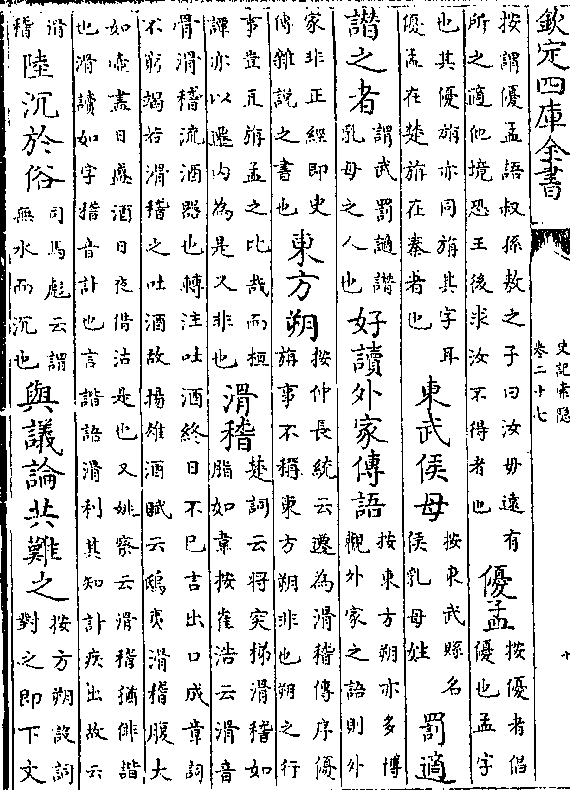 欽定四庫全書
史記索隱
卷二十七
十
按謂優孟語叔孫敖之子曰汝毋遠有所之適他境恐王後求汝不得者也優孟按優者倡優也孟字
也其優旃亦同旃其字耳優孟在楚旃在秦者也東武侯母按東武縣名侯乳母姓罰適
譖之者謂武罰謫譖乳母之人也好讀外家傳語按東方朔亦多博觀外家之語則外
家非正經即史傳雜說之書也東方朔按仲長統云遷為滑稽傳序優旃事不稱東方朔非也朔之行
事豈直旃孟之比哉而桓譚亦以遷内為是又非也滑稽楚詞云將突梯滑稽如脂如韋按崔浩云滑音
骨滑稽流酒器也轉注吐酒終日不已言出口成章詞不窮竭若滑稽之吐酒故揚雄酒賦云鴟夷滑稽腹大
如壺盡日盛酒日夜借沽是也又姚察云滑稽猶俳諧也滑讀如字稽音計也言諧語滑利其知計疾出故云
滑稽陸沉於俗司馬彪云謂無水而沉也與議論共難之按方朔設詞對之即下文